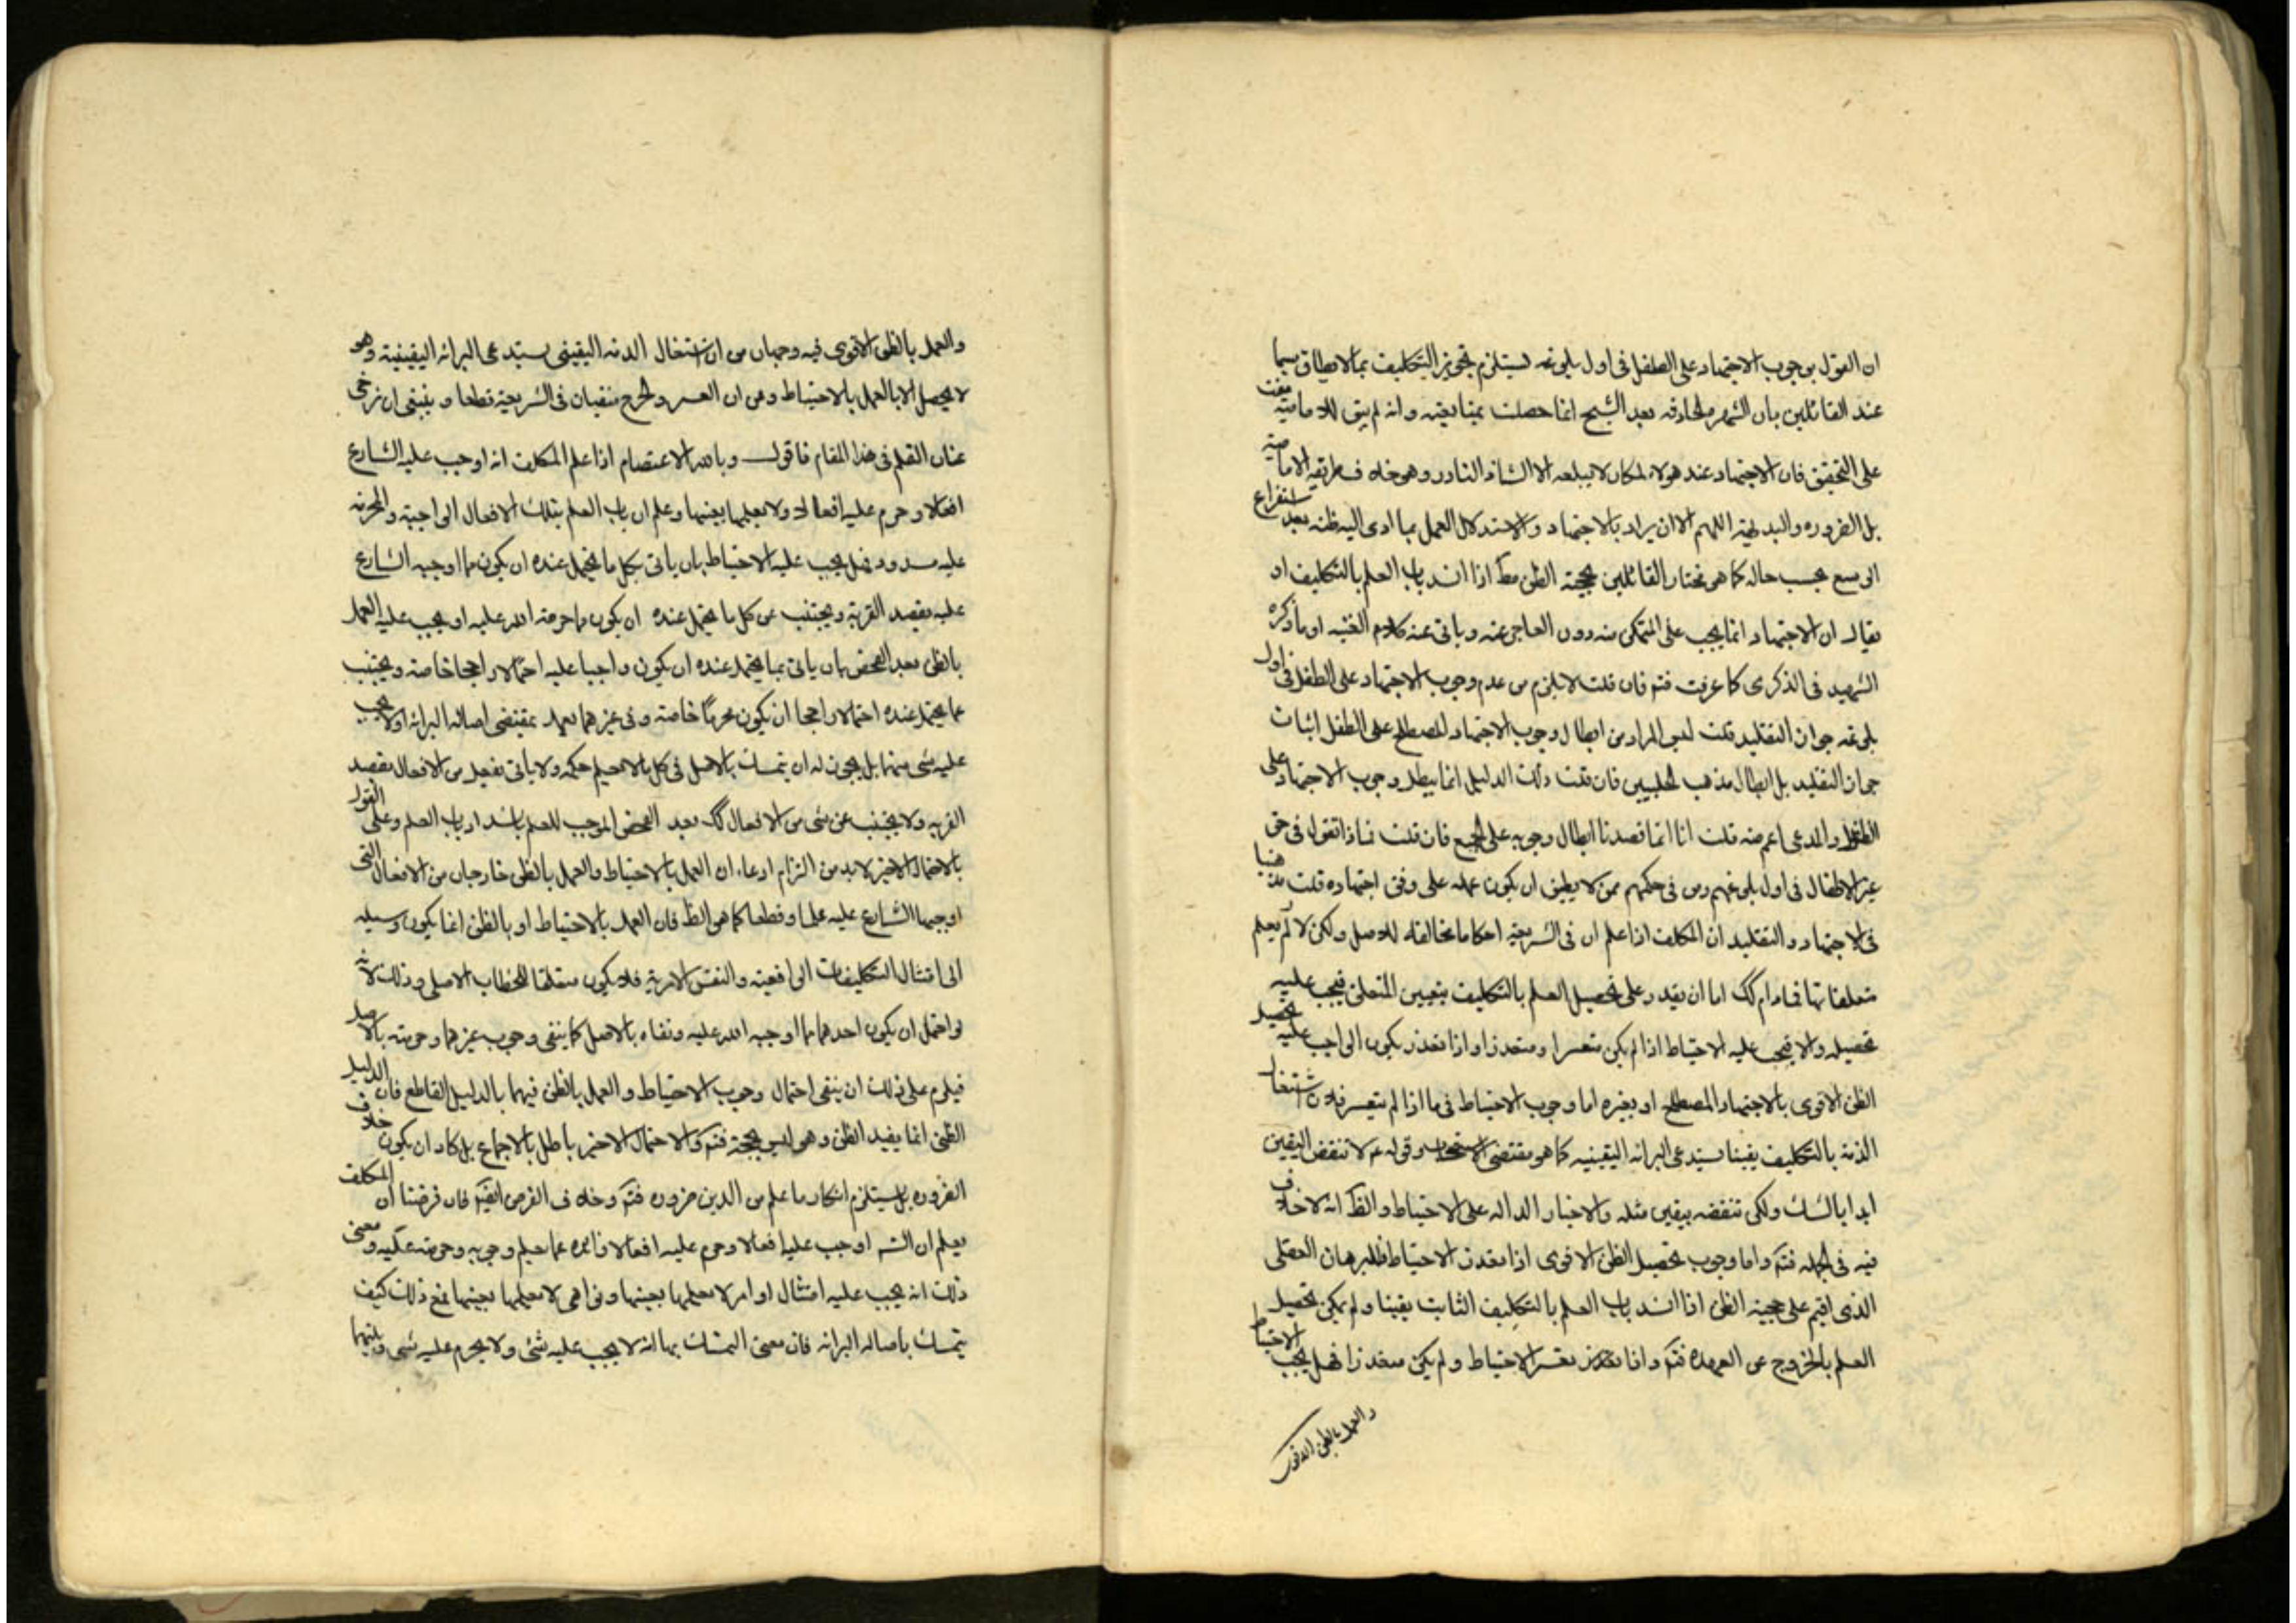 ان القول بوجوب الاجتهاد على الطفل فى اول بلوغه يستلزم تجويز التكليف بما لا يطاق سيما
عند القائلين بان الشهرة الحادثه بعد الشيخ انما حصلت بمتابعته وانه لم يبق للامامية مفت
على التحقيق فان الاجتهاد عند هولاء لمكان لا يبلغه الا الشاذ النادر وهو خلاف طريقه الامامية
بل الضروره والبديهة اللهم الا ان يراد بالاجتهاد والاستدلال العمل بما ادى اليه ظنه بعد استفراغ
الوسع بحسب حاله كما هو مختار القائلين بحجية الظن مط اذا انسد باب العلم بالتكليف او
يقال ان الاجتهاد انما يجب على المتمكن منه دون العاجز عنه وياتى عنه كلام او ما ذكره
الشهيد فى الذكرى كما عرفت فتم فان قلت لا يلزم من عدم وجوب الاجتهاد على الطفل فى اول
بلوغه جواز التقليد قلت ليس المراد من ابطال وجوب الاجتهاد المصطلح على الطفل اثبات
جواز التقليد بل ابطال مذهب الحلبيين فان قلت ذلك الدليل انما يبطل وجوب الاجتهاد على
الطفل والمدعى اعم منه قلت انا انما قصدنا ابطال وجوبه على الجميع فان قلت فماذا تقول فى حق
غير الاطفال فى اول بلوغهم ومن فى حكمهم ممن لا يطيق ان يكون عمله على وفق اجتهاده قلت مذهبنا
فى الاجتهاد والتقليد ان المكلف اذا علم ان فى الشريعة احكاما مخالفة للاصل ولكن لم يعلم
متعلقاتها فما دام كك اما ان يقدر على تحصيل العلم بالتكليف بتعيين المتعلق فيجب عليه
تحصيله والا فيجب عليه الاحتياط اذا لم يكن متعسرا ومتعذرا واذا تعذر يكون الواجب عليه تحصيل
الظن الاقوى بالاجتهاد المصطلح او بغيره اما وجوب الاحتياط فى ما اذا لم يتعسر فلان اشتغال
الذمة بالتكليف يقينا يستدعى البرائه اليقينيه كما هو مقتضى الاستصحاب وقوله عم لا تنقض اليقين
ابدا بالشك ولكن تنقضه بيقين مثله والاخبار الداله على الاحتياط والظ انه لا خلاف
فيه فى الجمله فتم واما وجوب تحصيل الظن الاقوى اذا تعذر الاحتياط فللبرهان العقلى
الذى اقيم على حجية الظن اذا انسد باب العلم بالتكليف الثابت يقينا ولم يمكن تحصيل
العلم بالخروج عن العهده فتم واذا تعسر الاحتياط ولم يكن متعذرا فهل يجب الاحتياط
والعمل بالظن الاقوى
والعمل بالظن الاقوى فيه وجهان من ان اشتغال الذمه اليقينى يستدعى البرائه اليقينية وهو
لا يحصل الا بالعمل بالاحتياط ومن ان العسر والحرج منفيان فى الشريعة قطعا وينبغى ان نرخى
عنان القلم فى هذا المقام فاقول وبالله الاعتصام اذا علم المكلف انه اوجب عليه الشارع
افعالا وحرم عليه افعالا ولا يعلمها بعينها وعلم ان باب العلم بتلك الافعال الواجبة والمحرمه
عليه مسدود فهل يجب عليه الاحتياط بان ياتى بكل ما يحتمل عنده ان يكون مما اوجبه الشارع
عليه بقصد القربة ويجتنب عن كل ما يحتمل عنده ان يكون ما حرمه الله عليه او يجب عليه العمل
بالظن بعد الفحص بان ياتى بما يحتمل عنده ان يكون واجبا عليه احتمالا راجحا خاصة ويجتنب
عما يحتمل عنده احتمالا راجحا ان يكون محرما خاصة وفى غيرهما يعمل بمقتضى اصالة البرائه اولا يجب
عليه شى منهما بل يجوز له ان يتمسك بالاصل فى كل ما لا يعلم حكمه ولا ياتى بفعل من الافعال بقصد
القربه ولا يجتنب عن شى من الافعال كك بعد الفحص الموجب للعلم بانسداد باب العلم وعلى القول
بالاحتمال الاخير لا بد من التزام ادعاء ان العمل بالاحتياط والعمل بالظن خارجان من الافعال التى
اوجبها الشارع عليه علما وقطعا كما هو الظ فان العمل بالاحتياط او بالظن انما يكون وسيله
الى امتثال التكليفات الواقعية والنفس الامرية فلا يكون متعلقا للخطاب الاصلى وذلك لانه
لو احتمل ان يكون احدهما مما اوجبه الله عليه ونفاه بالاصل كما ينفى وجوب غيرهما وحرمته بالاصل
فيلزم على ذلك ان ينفى احتمال وجوب الاحتياط والعمل بالظن فيهما بالدليل القاطع فان الدليل
الظنى انما يفيد الظن وهو ليس بحجة فتم والاحتمال الاخير باطل بالاجماع بل كاد ان يكون خلاف
الضروره بل يستلزم انكار ما علم من الدين ضروره فتم وخلاف الفرض ايضا فان فرضنا ان المكلف
يعلم ان الشه اوجب عليه افعالا وحرم عليه افعالا زائده عما علم وجوبه وحرمته عليه ومعنى
ذلك انه يجب عليه امتثال اوامر لا يعلمها بعينها ونواهى لا يعلمها بعينها فمع ذلك كيف
يتمسك باصاله البرائه فان معنى التمسك بها انه لا يجب عليه شئ ولا يحرم عليه شى وبينهما